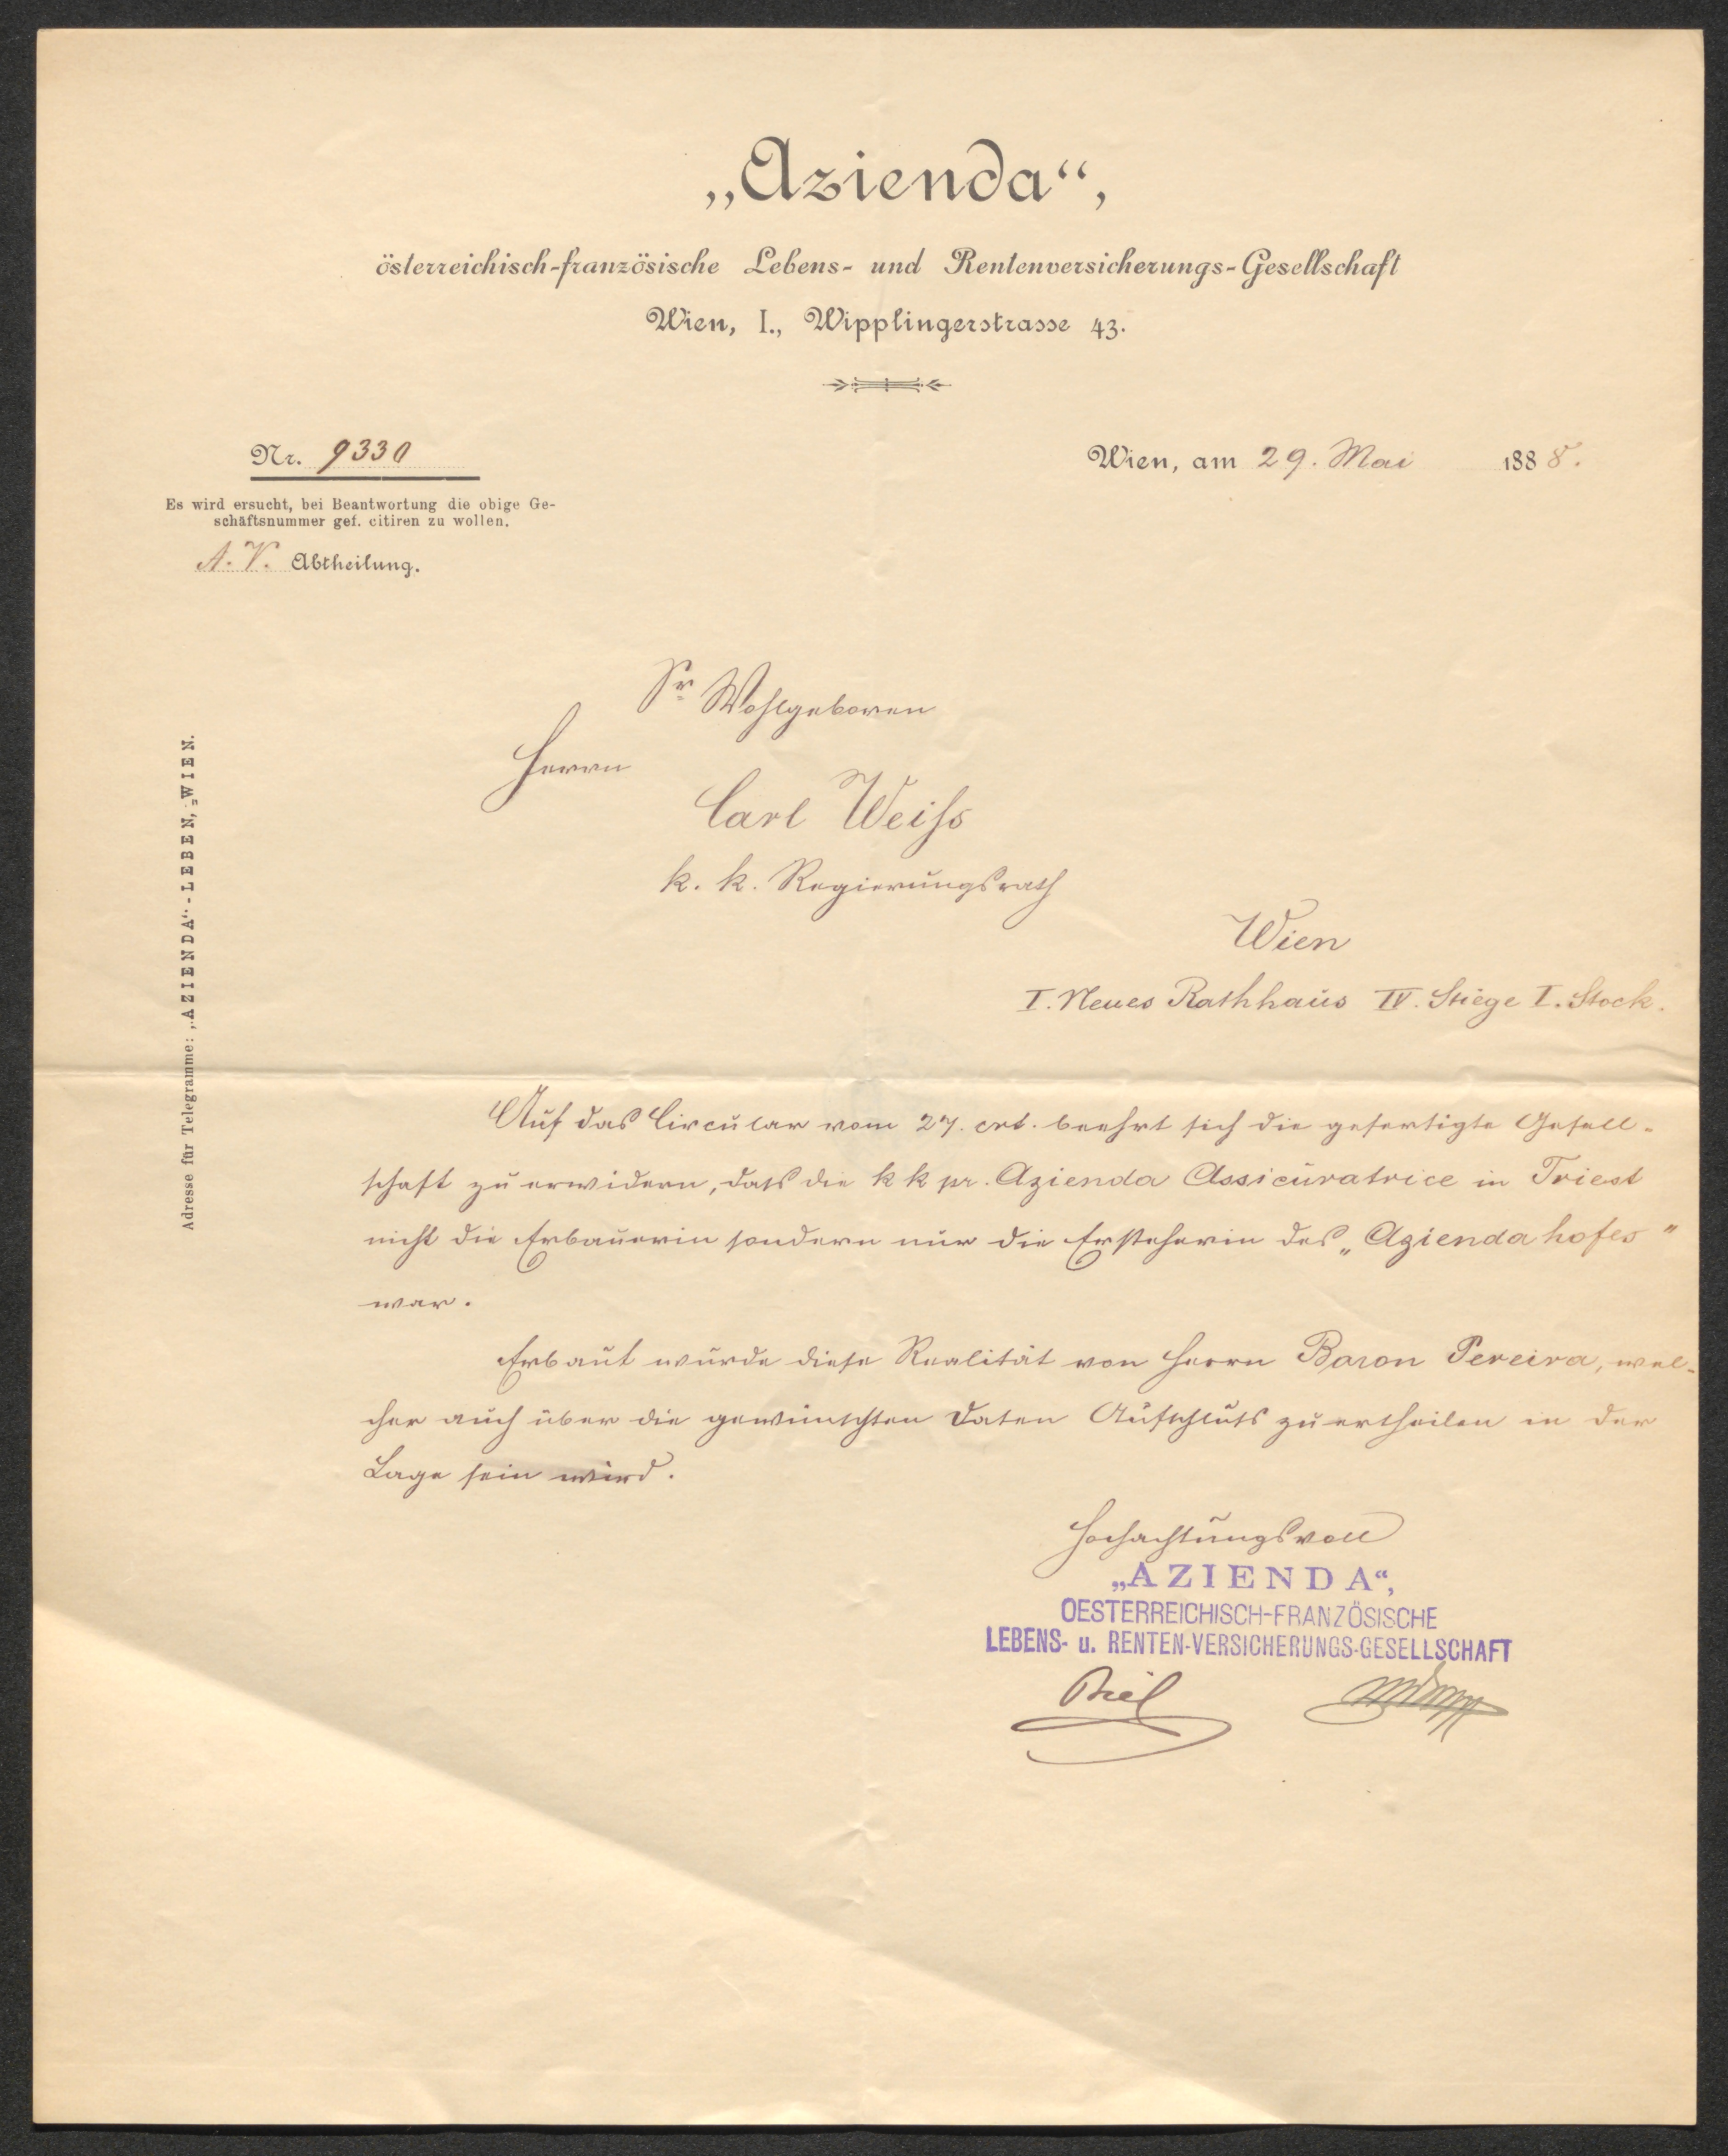 „Azienda“,
österreichisch-französische Lebens- und Rentenversicherungs-Gesellschaft
Wien, I., Wipplingerstrasse 43.
Nr. 9330
Wien, am 29. Mai 1888.
Es wird ersucht, bei Beantwortung die obige Ge-
schäftsnummer gef. citiren zu wollen.
A. V. Abtheilung.
Adresse für Telegramme: „AZIENDA“-LEBEN, WIEN.
Sr Wohlgeboren
Herrn
Carl Weiſs
k. k. Regierungsrath
Wien
I. Neues Rathhaus IV. Stiege I. Stock.
Auf das Circular vom 27. crt. beehrt sich die gefertigte Gesell-
schaft zu erwidern, daſs die k k pr. Azienda Assicuratrice in Triest
nicht die Erbauerin sondern nur die Ersteherin des „Aziendahofes“
war.
Erbaut wurde diese Realität von Herrn Baron Pereira, wel-
cher auch über die gewünschten Daten Aufschluſs zu ertheilen in der
Lage sein wird.
Hochachtungsvoll
„AZIENDA“,
OESTERREICHISCH-FRANZÖSISCHE
LEBENS- u. RENTEN-VERSICHERUNGS-GESELLSCHAFT